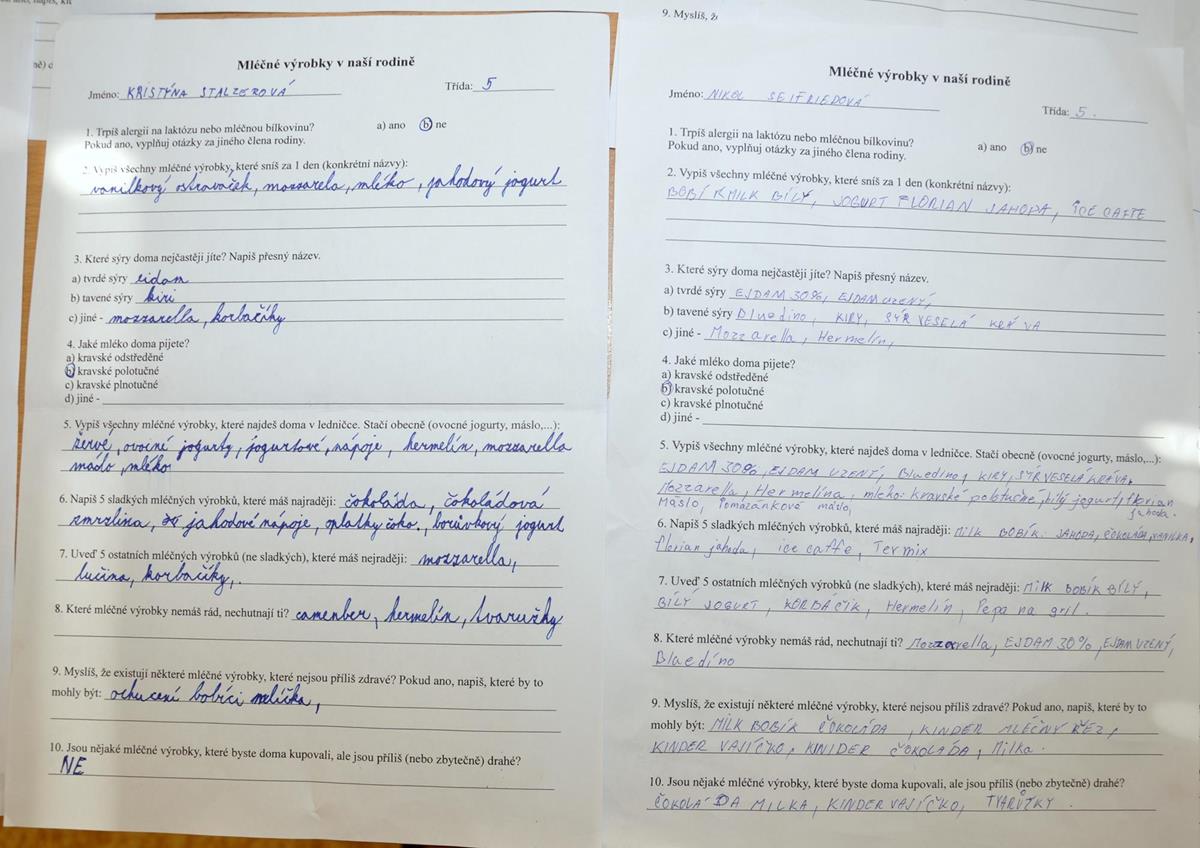 Mléčné výrobky v naší rodině
Jméno: KRISTÝNA STALZEROVÁ Třída: 5
1. Trpíš alergii na laktózu nebo mléčnou bílkovinu? a) ano b) ne
Pokud ano, vyplňuj otázky za jiného člena rodiny.
2. Vypiš všechny mléčné výrobky, které sníš za 1 den (konkrétní názvy):
vanilkový ostraváček, mozzarela, mléko, jahodový jogurt
3. Které sýry doma nejčastěji jíte? Napiš přesný název.
a) tvrdé sýry eidam
b) tavené sýry kiri
c) jiné - mozzarella, korbačíky
4. Jaké mléko doma pijete?
a) kravské odstředěné
b) kravské polotučné
c) kravské plnotučné
d) jiné -
5. Vypiš všechny mléčné výrobky, které najdeš doma v ledničce. Stačí obecně (ovocné jogurty, máslo,...):
žervé, ovocné jogurty, jogurtové, nápoje, hermelín, mozzarella
máslo, mléko
6. Napiš 5 sladkých mléčných výrobků, které máš nejraději: čokoláda, čokoládová
zmrzlina, jahodové nápoje, oplatky čoko., borůvkový jogurt
7. Uveď 5 ostatních mléčných výrobků (ne sladkých), které máš nejraději: mozzarella,
lučina, korbačíky,.
8. Které mléčné výrobky nemáš rád, nechutnají ti? camenber, hermelín, tvaružky
9. Myslíš, že existují některé mléčné výrobky, které nejsou příliš zdravé? Pokud ano, napiš, které by to
mohly být: ochucení bobíci mlíčka,
10. Jsou nějaké mléčné výrobky, které byste doma kupovali, ale jsou příliš (nebo zbytečně) drahé?
NE
9. Myslíš, ž
Mléčné výrobky v naší rodině
Jméno: NIKOL SEIFRIEDOVÁ
Třída: 5.
1. Trpíš alergii na laktózu nebo mléčnou bílkovinu? a) ano b) ne
Pokud ano, vyplňuj otázky za jiného člena rodiny.
2. Vypiš všechny mléčné výrobky, které sníš za 1 den (konkrétní názvy):
BOBÍKMILK BÍLÝ, JOGURT FLORIAN JAHODA, ICE CAFFE
3. Které sýry doma nejčastěji jíte? Napiš přesný název.
a) tvrdé sýry EJDAM 30%, EJDAM UZENÝ,
b) tavené sýry Bluedino, KIRY, SÝR VESELÁ KRÁVA
c) jiné - Mozzarella, Hermelín,
4. Jaké mléko doma pijete?
a) kravské odstředěné
b) kravské polotučné
c) kravské plnotučné
d) jiné -
5. Vypiš všechny mléčné výrobky, které najdeš doma v ledničce. Stačí obecně (ovocné jogurty, máslo,...):
EJDAM 30%, EJDAM UZENÍ, Bluedino, KIRY, SÝR VESELÁ KRÁVA,
Mozzarella, Hermelína, mléko: kravské polotučné, bílý jogurt, florian
jahoda.
Máslo, Pomazánkové máslo,
6. Napiš 5 sladkých mléčných výrobků, které máš nejraději: MILK BOBÍK: JAHODA, ČOKOLÁDA, VANILKA,
florian jahoda, ice caffe, Termix
7. Uveď 5 ostatních mléčných výrobků (ne sladkých), které máš nejraději: MILK BOBÍK BÍLÝ,
BÍLÝ JOGURT, KORBÁČIK, Hermelín, Pepa na gril.
8. Které mléčné výrobky nemáš rád, nechutnají ti? Mozzarella, EJDAM 30%, EJDAM UZENÝ,
Bluedíno
9. Myslíš, že existují některé mléčné výrobky, které nejsou příliš zdravé? Pokud ano, napiš, které by to
mohly být: MILK BOBÍK ČOKOLÁDA, KINDER MLÉČNÝ ŘEZ,
KINDER VAJÍČKO, KINIDER ČOKOLÁDA, Milka.
10. Jsou nějaké mléčné výrobky, které byste doma kupovali, ale jsou příliš (nebo zbytečně) drahé?
ČOKOLÁDA MILKA, KINDER VAJÍČKO, TVARŮŽKY.